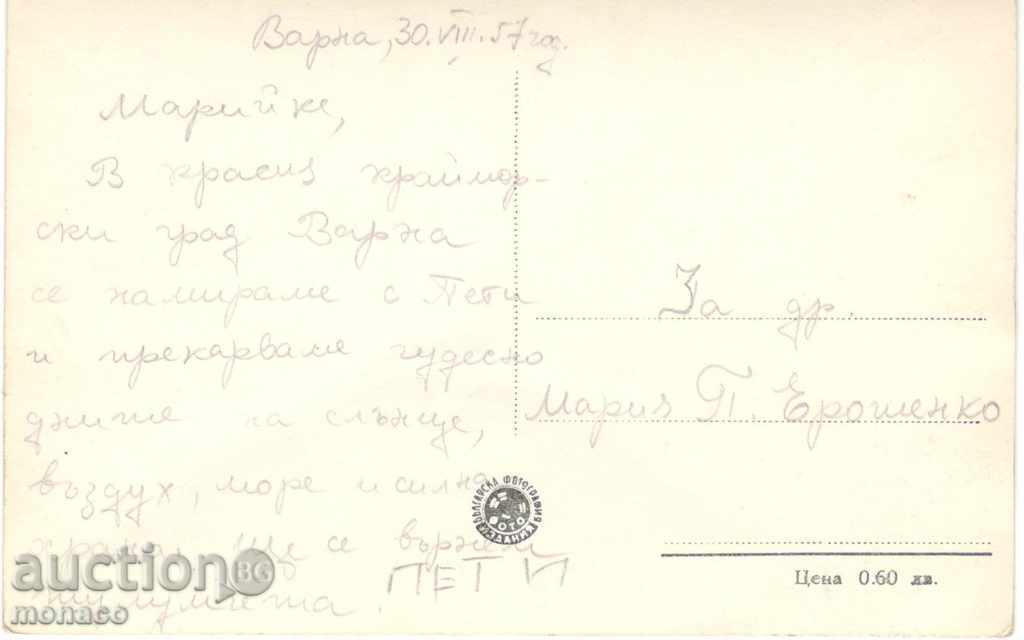 Варна, 30.VIII.57 год.
Марийке,
В красив краймор-
ски град Варна
се намираме с Пети
и прекарваме чудесно
дните на слънце,
въздух, море и силна
храна. Ще се върнем
ПЕТИ
За др.
Мария П. Ерошенко
БЪЛГАРСКА ФОТОГРАФИЯ
ФОТО
ИЗДАНИЯ
Цена 0.60 лв.
auction BG
monaco